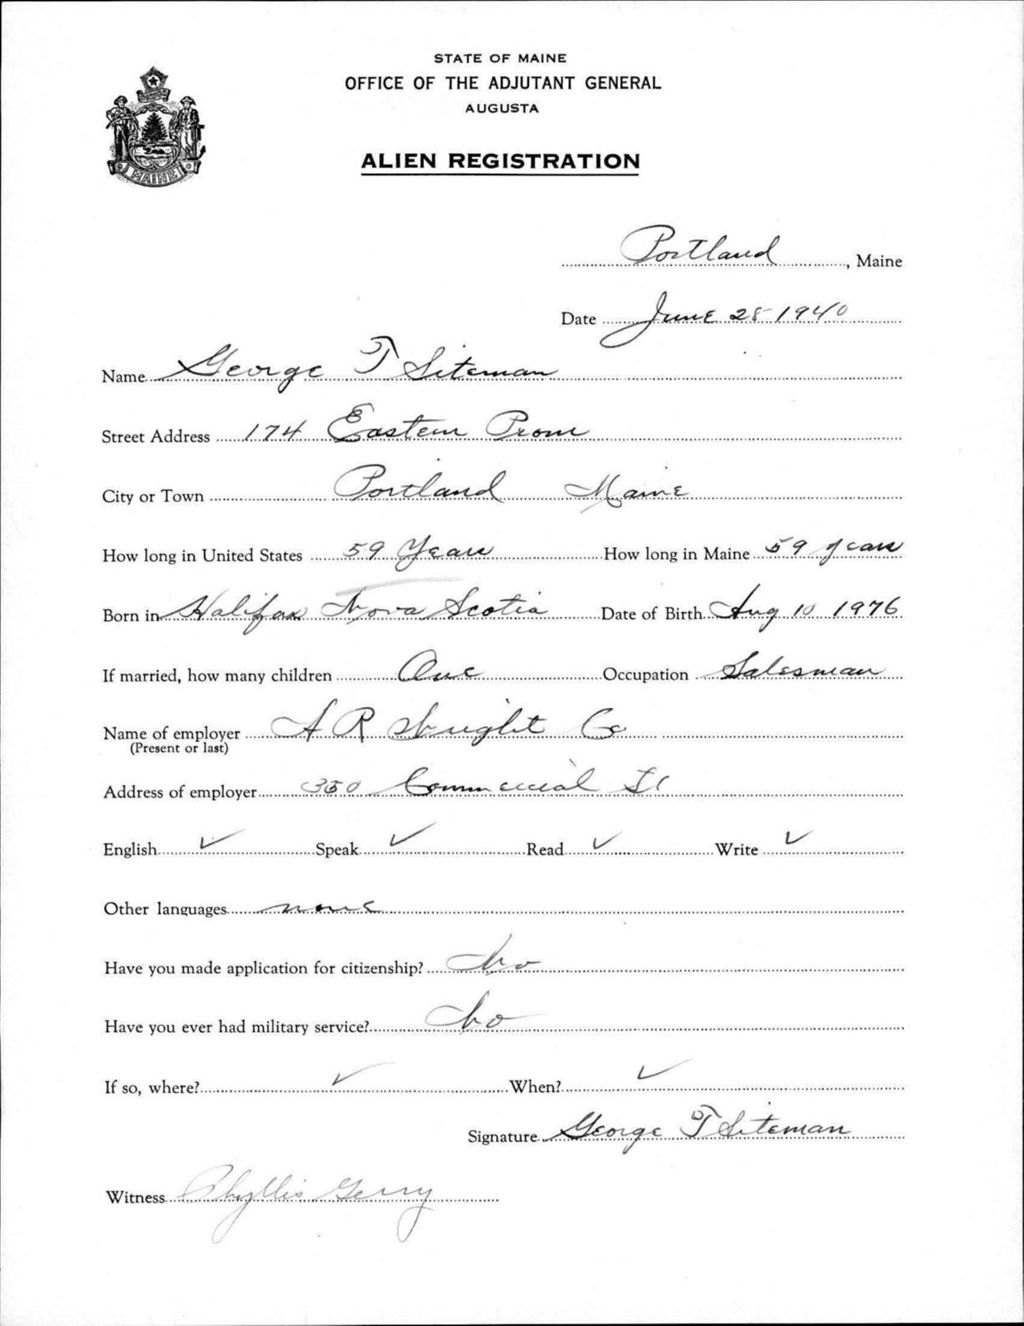 STATE OF MAINE
OFFICE OF THE ADJUTANT GENERAL
AUGUSTA
MAINE
ALIEN REGISTRATION
Portland, Maine
Date June 28 1940
Name George T Siteman
Street Address 174 Eastern Prom
City or Town Portland Maine
How long in United States 59 Years How long in Maine 59 years
Born in Halifax Nova Scotia Date of Birth Aug 10 1976
If married, how many children One Occupation Salesman
Name of employer A R Wright Co
(Present or last)
Address of employer 350 Commercial St
English ✓ Speak ✓ Read ✓ Write ✓
Other languages none
Have you made application for citizenship? No
Have you ever had military service? No
If so, where? ✓ When? ✓
Signature George T Siteman
Witness Phyllis Gerry